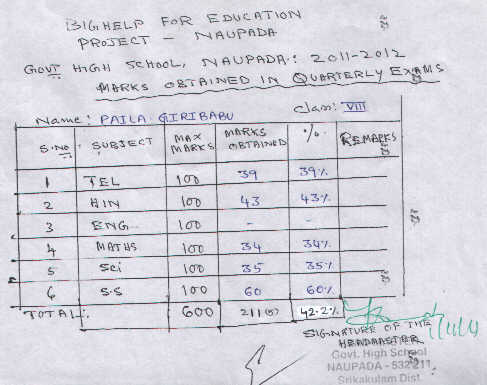 BIGHELP FOR EDUCATION
PROJECT - NAUPADA
GOVT HIGH SCHOOL, NAUPADA: 2011-2012
MARKS OBTAINED IN QUARTERLY EXAMS
Name: PAILA GIRIBABU Class: VIII
S.NO SUBJECT MAX MARKS MARKS OBTAINED % REMARKS
1 TEL 100 39 39%
2 HIN 100 43 43%
3 ENG 100 - -
4 MATHS 100 34 34%
5 Sci 100 35 35%
6 S.S 100 60 60%
TOTAL: 600 211(5) 42.2%
SIGNATURE OF THE
HEADMASTER
Govt. High School
NAUPADA - 532 211
Srikakulam Dist